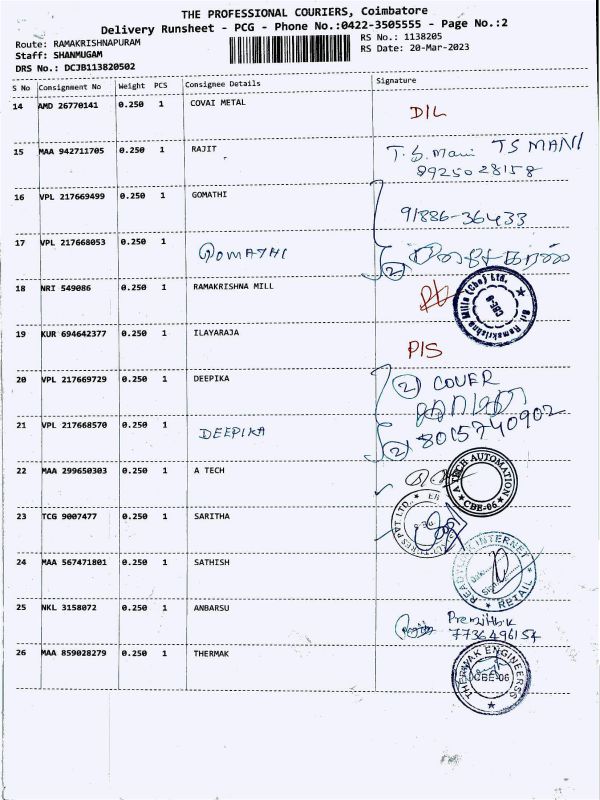 THE PROFESSIONAL COURIERS, Coimbatore
Delivery Runsheet - PCG - Phone No.:0422-3505555 - Page No.:2
Route: RAMAKRISHNAPURAM
Staff: SHANMUGAM
DRS No.: DCJB113820502
RS No.: 1138205
RS Date: 20-Mar-2023
S No Consignment No Weight PCS Consignee Details Signature
14 AMD 26770141 0.250 1 COVAI METAL DIL
15 MAA 942711705 0.250 1 RAJIT T.S. Mani TS MANI
8925028158
16 VPL 217669499 0.250 1 GOMATHI 91886-36433
17 VPL 217668053 0.250 1 GOMATHI 2
18 NRI 549086 0.250 1 RAMAKRISHNA MILL
Sri Ramakrishna Mills (Cbe) Ltd. CBE-6
19 KUR 694642377 0.250 1 ILAYARAJA PIS
20 VPL 217669729 0.250 1 DEEPIKA 2 COVER
21 VPL 217668570 0.250 1 DEEPIKA 2 8015740902
22 MAA 299650303 0.250 1 A TECH
A TECH AUTOMATION CBE-06
23 TCG 9007477 0.250 1 SARITHA
PVT. LTD.
24 MAA 567471801 0.250 1 SATHISH
INTERNET RETAIL
25 NKL 3158072 0.250 1 ANBARSU
7736496154
26 MAA 859028279 0.250 1 THERMAK
THERMAK ENGINEERSS CBE-06